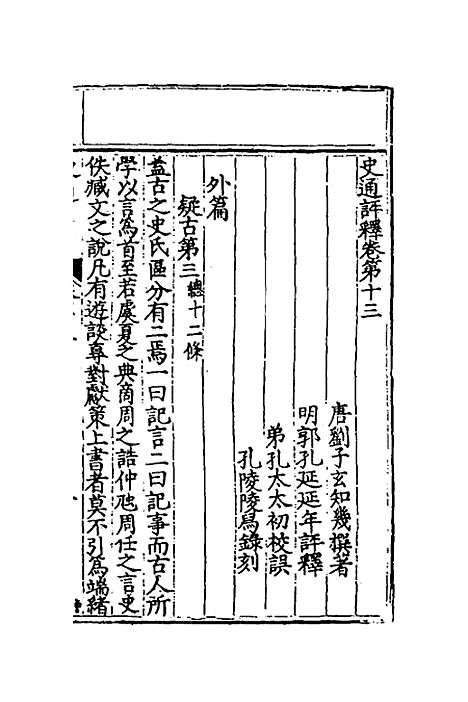 史通評釋卷第十三
唐劉子玄知幾撰著
明郭孔延延年評釋
弟孔太太初校誤
孔陵陵爲錄刻
外篇
疑古第三總十二條
蓋古之史氏區分有二焉一曰記言二曰記事而古人所
學以言爲首至若虞夏之典商周之誥仲虺周任之言史
佚臧文之說凡有遊談專對獻策上書者莫不引爲端緒